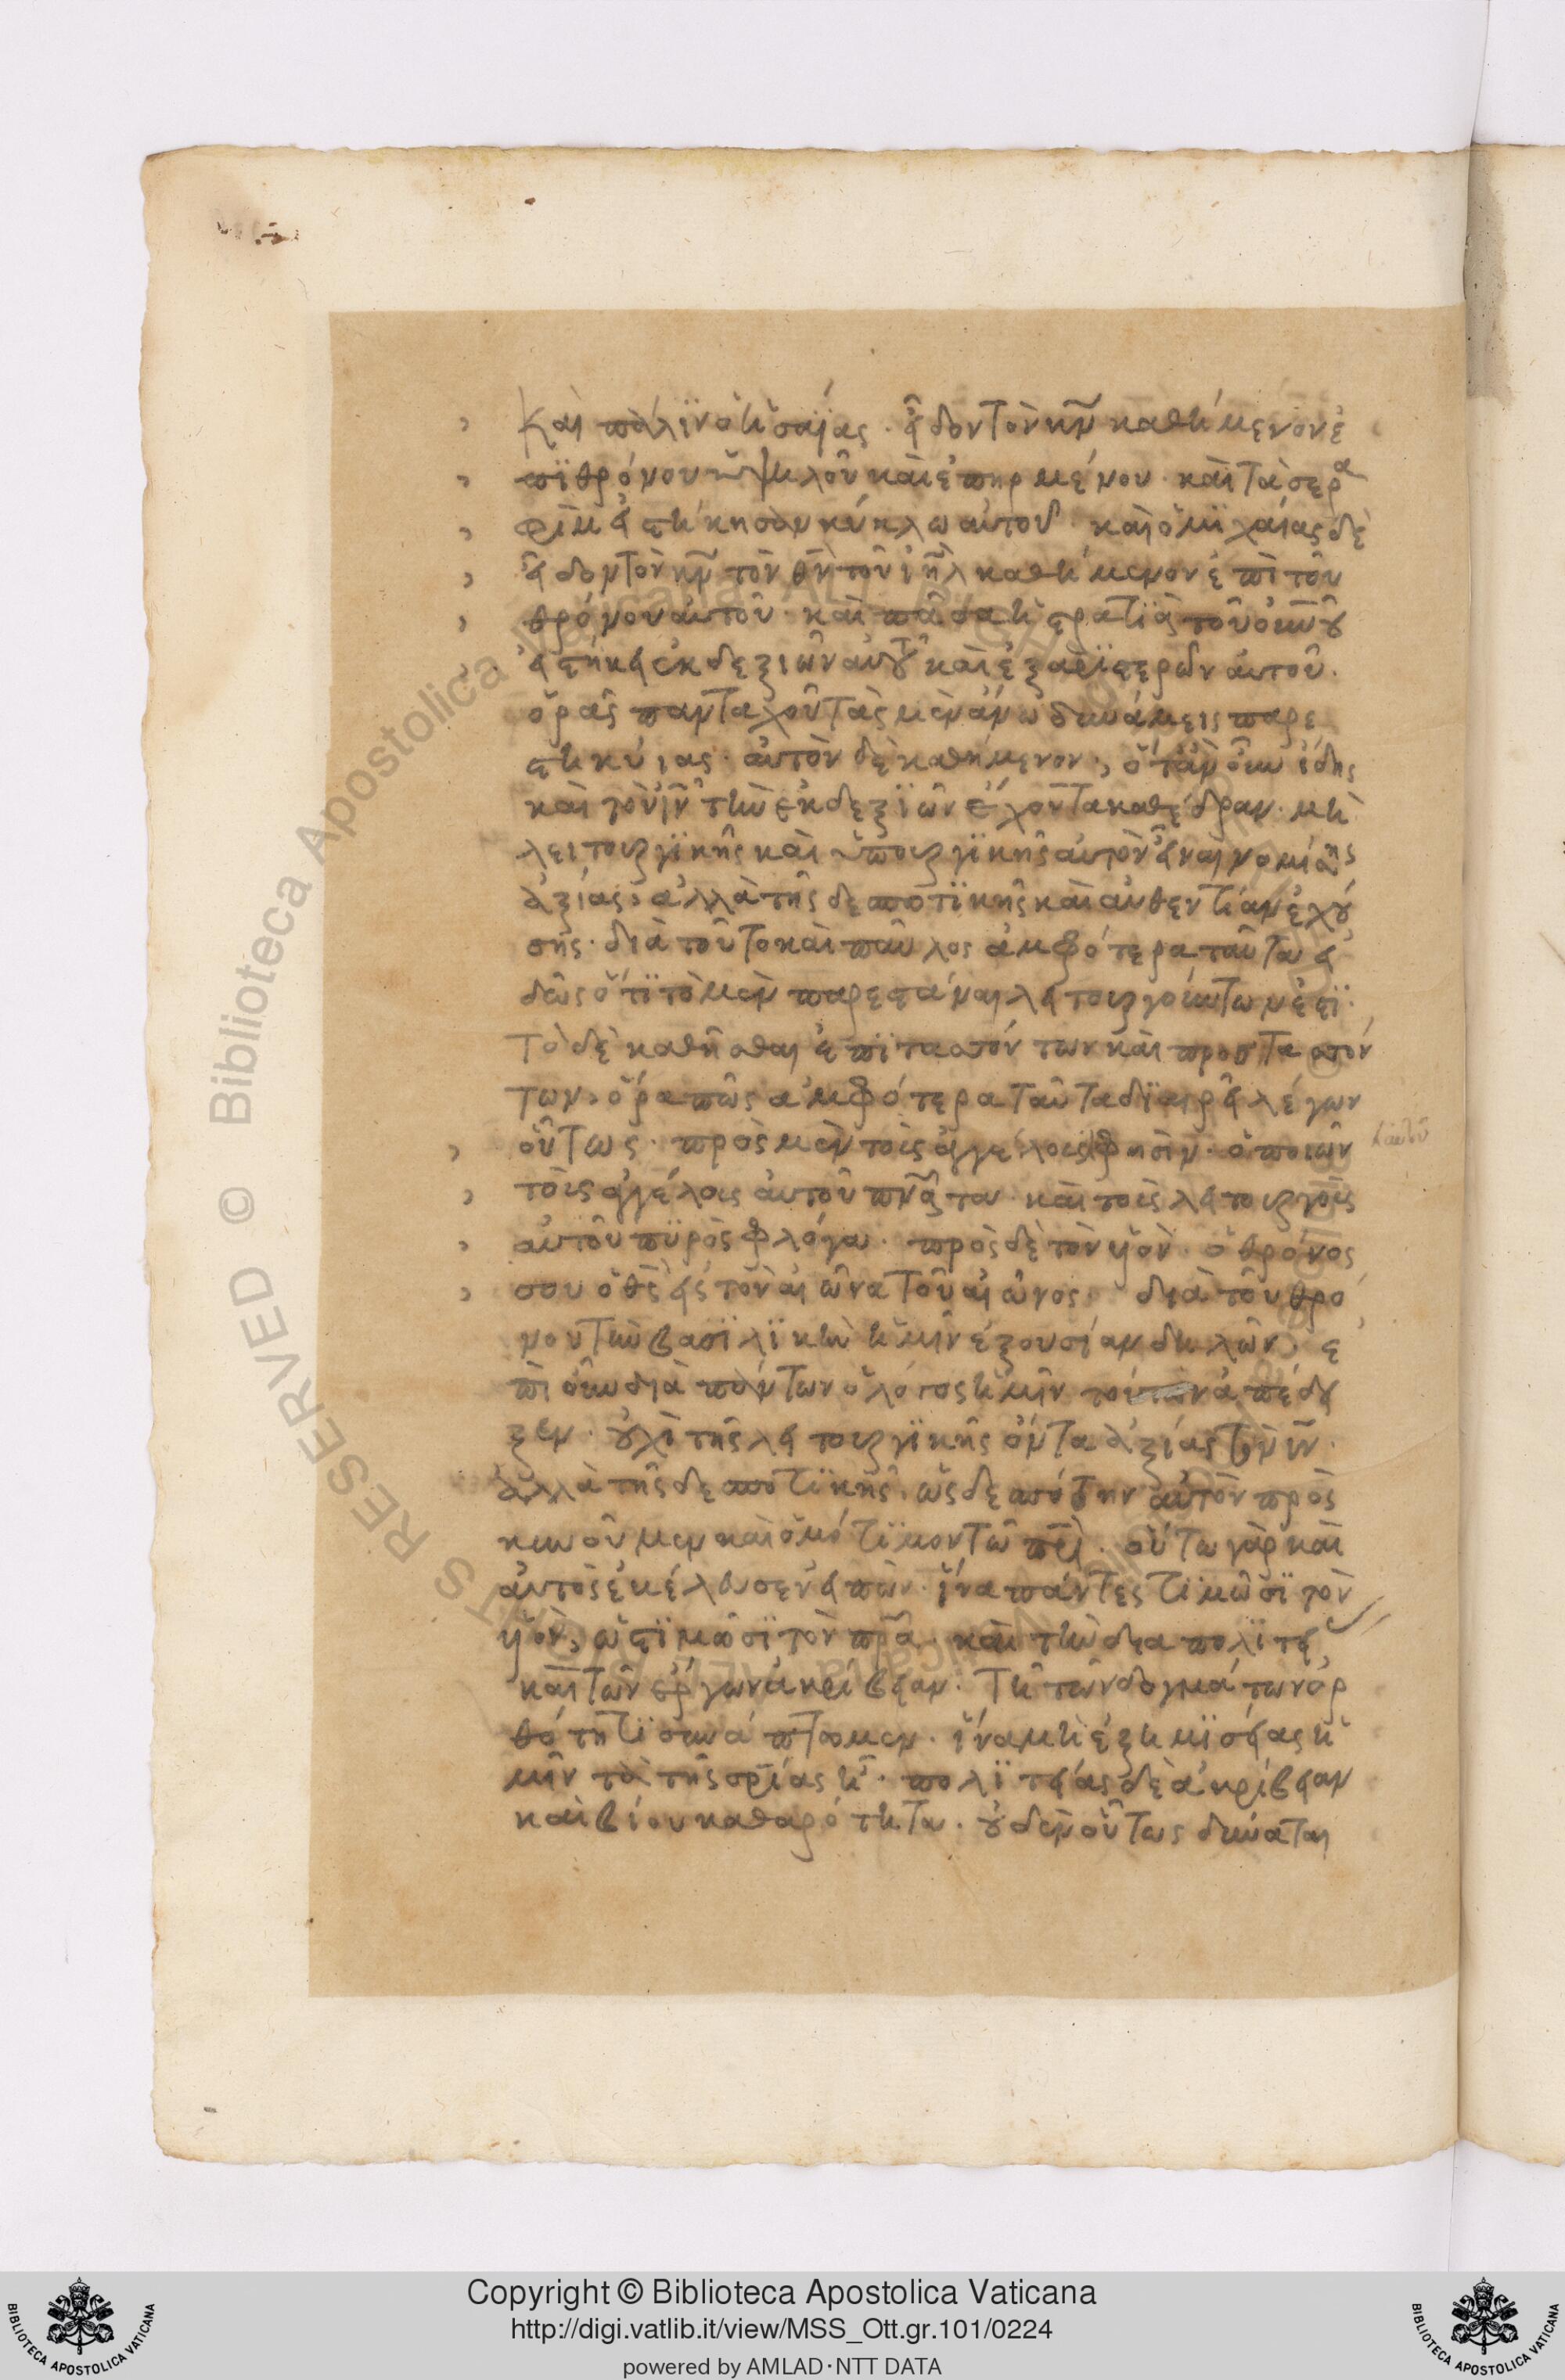 Καὶ πάλϊν ὁ ἡσαΐας· εἶδον τὸν κν̅ καθήμενον ἐ
πϊ θρόνου ὑψηλοῦ καὶ ἐπηρμένου· καὶ τὰ σερα
φὶμ εἱστήκησαν κύκλω αὐτοῦ· καὶ ὁ μϊχαίας δὲ
εἶδον τὸν κν̅ τὸν θν̅ τοῦ ιη̅λ καθήμενον ἐπὶ τοῦ
θρόνου αὐτοῦ· καὶ πᾶσα ἡ στρατϊὰ τοῦ ουνου
εἱστήκει ἐκ δεξιῶν αὐτοῦ καὶ ἐξ αρϊστερῶν αὐτοῦ·
ὁρᾶς πανταχοῦ τὰς μὲν ἄνω δυνάμεις παρε
στηκυίας· αὐτὸν δὲ καθήμενον· ὅταν οὖν ἴδης
καὶ τὸν υν̅ τὴν ἐκ δεξϊῶν ἔχοντα καθέδραν· μὴ
λειτουργϊκῆς καὶ ὑπουργϊκῆς αὐτὸν εἶναι νομίσης
ἀξίας· ἀλλὰ τῆς δεσποτϊκῆς καὶ αὐθεντίαν ἐχού
σης· διὰ τοῦτο καὶ παῦλος ἀμφότερα ταῦτα εἰ
δὼς ὅτϊ τὸ μὲν παρεστάναι λειτουργούντων ἐστϊ·
Τὸ δὲ καθῆσθαι ἐπϊταττόντων καὶ προσταττόν
των· ὅρα πῶς ἀμφότερα ταῦτα δϊαιρεῖ λέγων
οὕτως· πρὸς μὲν τοὺς ἀγγέλους φησὶν· ὁ ποιῶν
τοὺς ἀγγέλους αὐτοῦ πνα̅τα· καὶ τοὺς λειτουργοὺς
αὐτοῦ πϋρὸς φλόγα· πρὸς δὲ τὸν υἱὸν· ὁ θρόνος
σου ὁ θς̅ εἰς τὸν αἰῶνα τοῦ αἰῶνος· διὰ τοῦ θρό
νου τὴν βασϊλϊκὴν ἡμῖν ἐξουσίαν δηλῶν· ἐ
πὶ οὖν διὰ πάντων ὁ λόγος ἡμῖν τοῦτον ἀπέδει
ξεν· οὐχὶ τῆς λειτουργϊκῆς ὄντα ἀξίας τὸν υν̅·
ἀλλὰ τῆς δεσποτϊκῆς· ὡς δεσπότην αὐτὸν πρὸς
κυνοῦμεν καὶ ὁμότϊμον τῶ πρι̅· οὕτω γὰρ καὶ
αὐτὸς ἐκέλευσεν εἰπὼν· ἵνα πάντες τϊμῶσϊ τὸν
υἱὸν, ὡς τϊμῶσϊ τὸν πρα̅· καὶ τὴν δια πολϊτεί
καὶ τῶν ἔργων ἀκρίβειαν· Τῆ τῶν δογμάτων ὀρ
θότητϊ συνάπτωμεν· ἵνα μὴ ἐξ ἡμϊσείας ἡ
μῖν τὰ τῆς σρ̅ίας ἦ· πολϊτείας δὲ ἀκρίβειαν
καὶ βίου καθαρότητα· οὐδὲν οὕτως δύναται
Copyright © Biblioteca Apostolica Vaticana
http://digi.vatlib.it/view/MSS_Ott.gr.101/0224
powered by AMLAD·NTT DATA